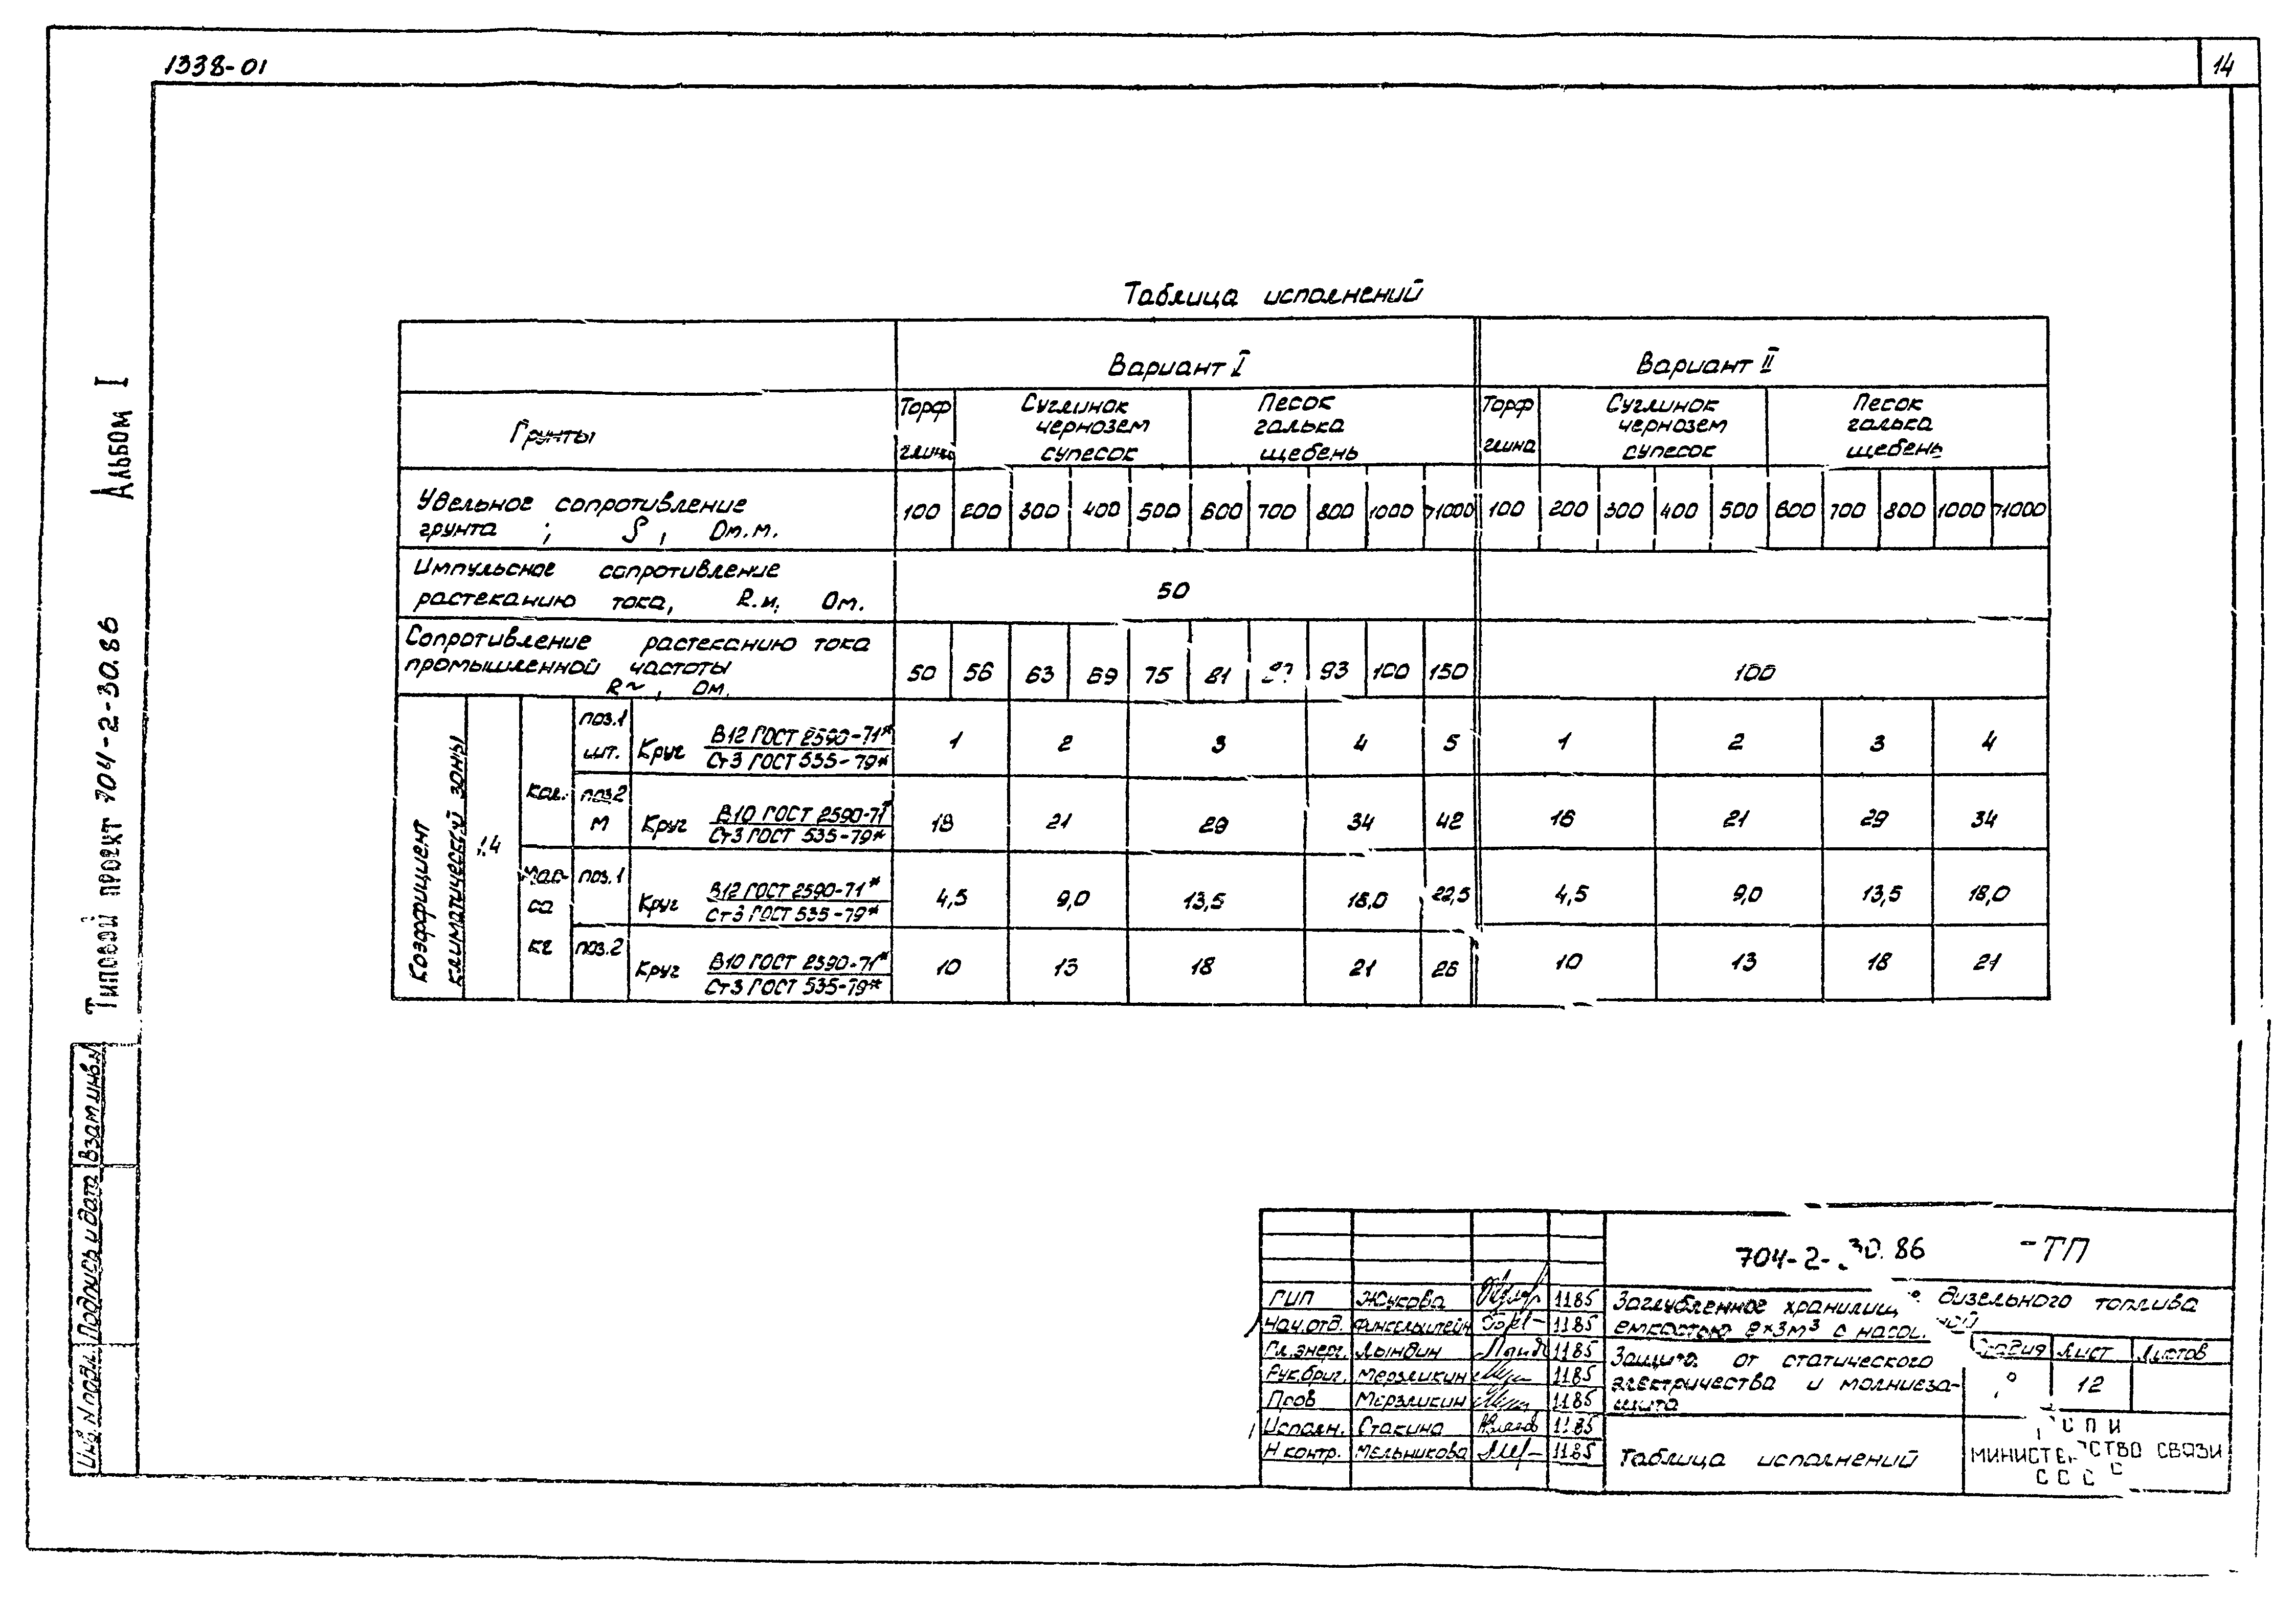 1338-01
14
Альбом I
Типовой проект 704-2-30.86
Взам инв.N
Подпись и дата
Инв. N подл.
Таблица исполнений
Вариант I
Вариант II
Грунты
Торф глина
Суглинок чернозем супесок
Песок галька щебень
Торф глина
Суглинок чернозем супесок
Песок галька щебень
Удельное сопротивление
грунта ; ρ, Ом.м.
100 200 300 400 500 600 700 800 1000 >1000 100 200 300 400 500 600 700 800 1000 >1000
Импульсное сопротивление
растеканию тока, R.и, Ом.
50
Сопротивление растеканию тока
промышленной частоты
R~, Ом.
50 56 63 69 75 81 93 100 150
100
Коэффициент
климатической зоны
1.4
Кол.
поз.1
шт.
Круг В12 ГОСТ 2590-71*
Ст3 ГОСТ 535-79*
1 2 3 4 5 1 2 3 4
поз.2
м
Круг В10 ГОСТ 2590-71*
Ст3 ГОСТ 535-79*
18 21 29 34 42 16 21 29 34
Мас-
са
кг
поз.1
Круг В12 ГОСТ 2590-71*
Ст3 ГОСТ 535-79*
4,5 9,0 13,5 18,0 22,5 4,5 9,0 13,5 18,0
поз.2
Круг В10 ГОСТ 2590-71*
Ст3 ГОСТ 535-79*
10 13 18 21 26 10 13 18 21
704-2-30.86 -ТП
ГИП Жукова 1185
Нач.отд. Финкельштейн 1185
Гл.энерг. Лындин 1185
Рук.бриг. Мерзликин 1185
Пров Мерзликин 1185
Исполн. Стакина 1185
Н контр. Мельникова 1185
Заглубленное хранилище дизельного топлива
емкостью 2×3м³ с насосной
Защита от статического
электричества и молниеза-
щита
Стадия Лист Листов
12
Таблица исполнений
СПИ
МИНИСТЕРСТВО СВЯЗИ
СССР